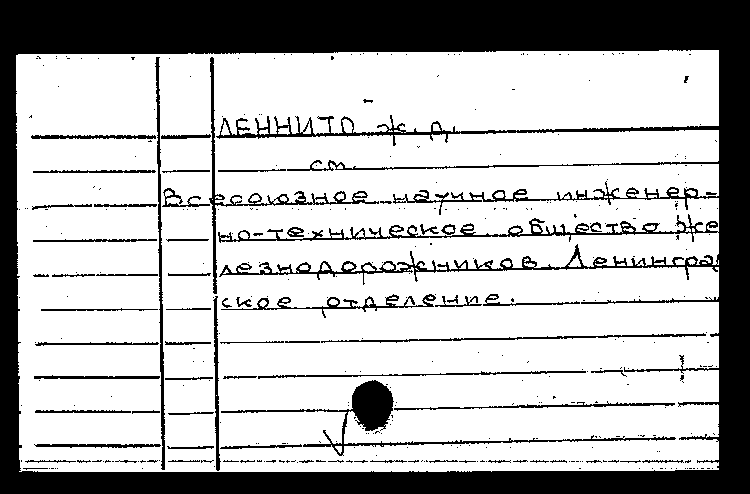 ЛЕННИТО ж. д.
см.
Всесоюзное научное инженер-
но-техническое общество же
лезнодорожников. Ленинград
ское отделение.